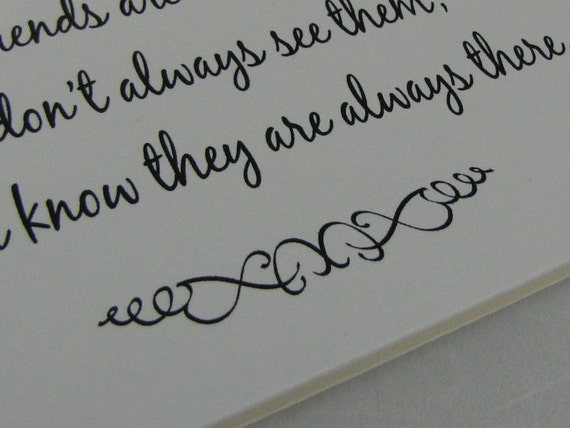 are
don't always see them,
know they are always there.